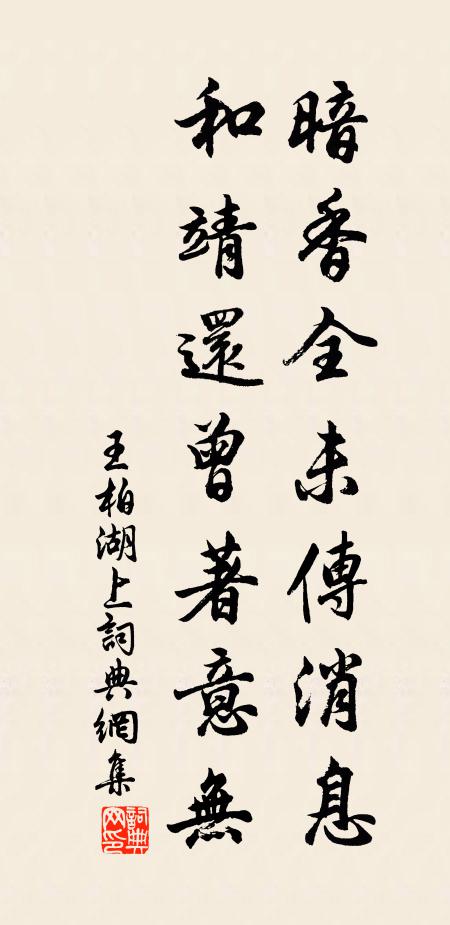 暗香全未傳消息
和靖還曾著意無
王柏湖上詞典網集
詞典網印